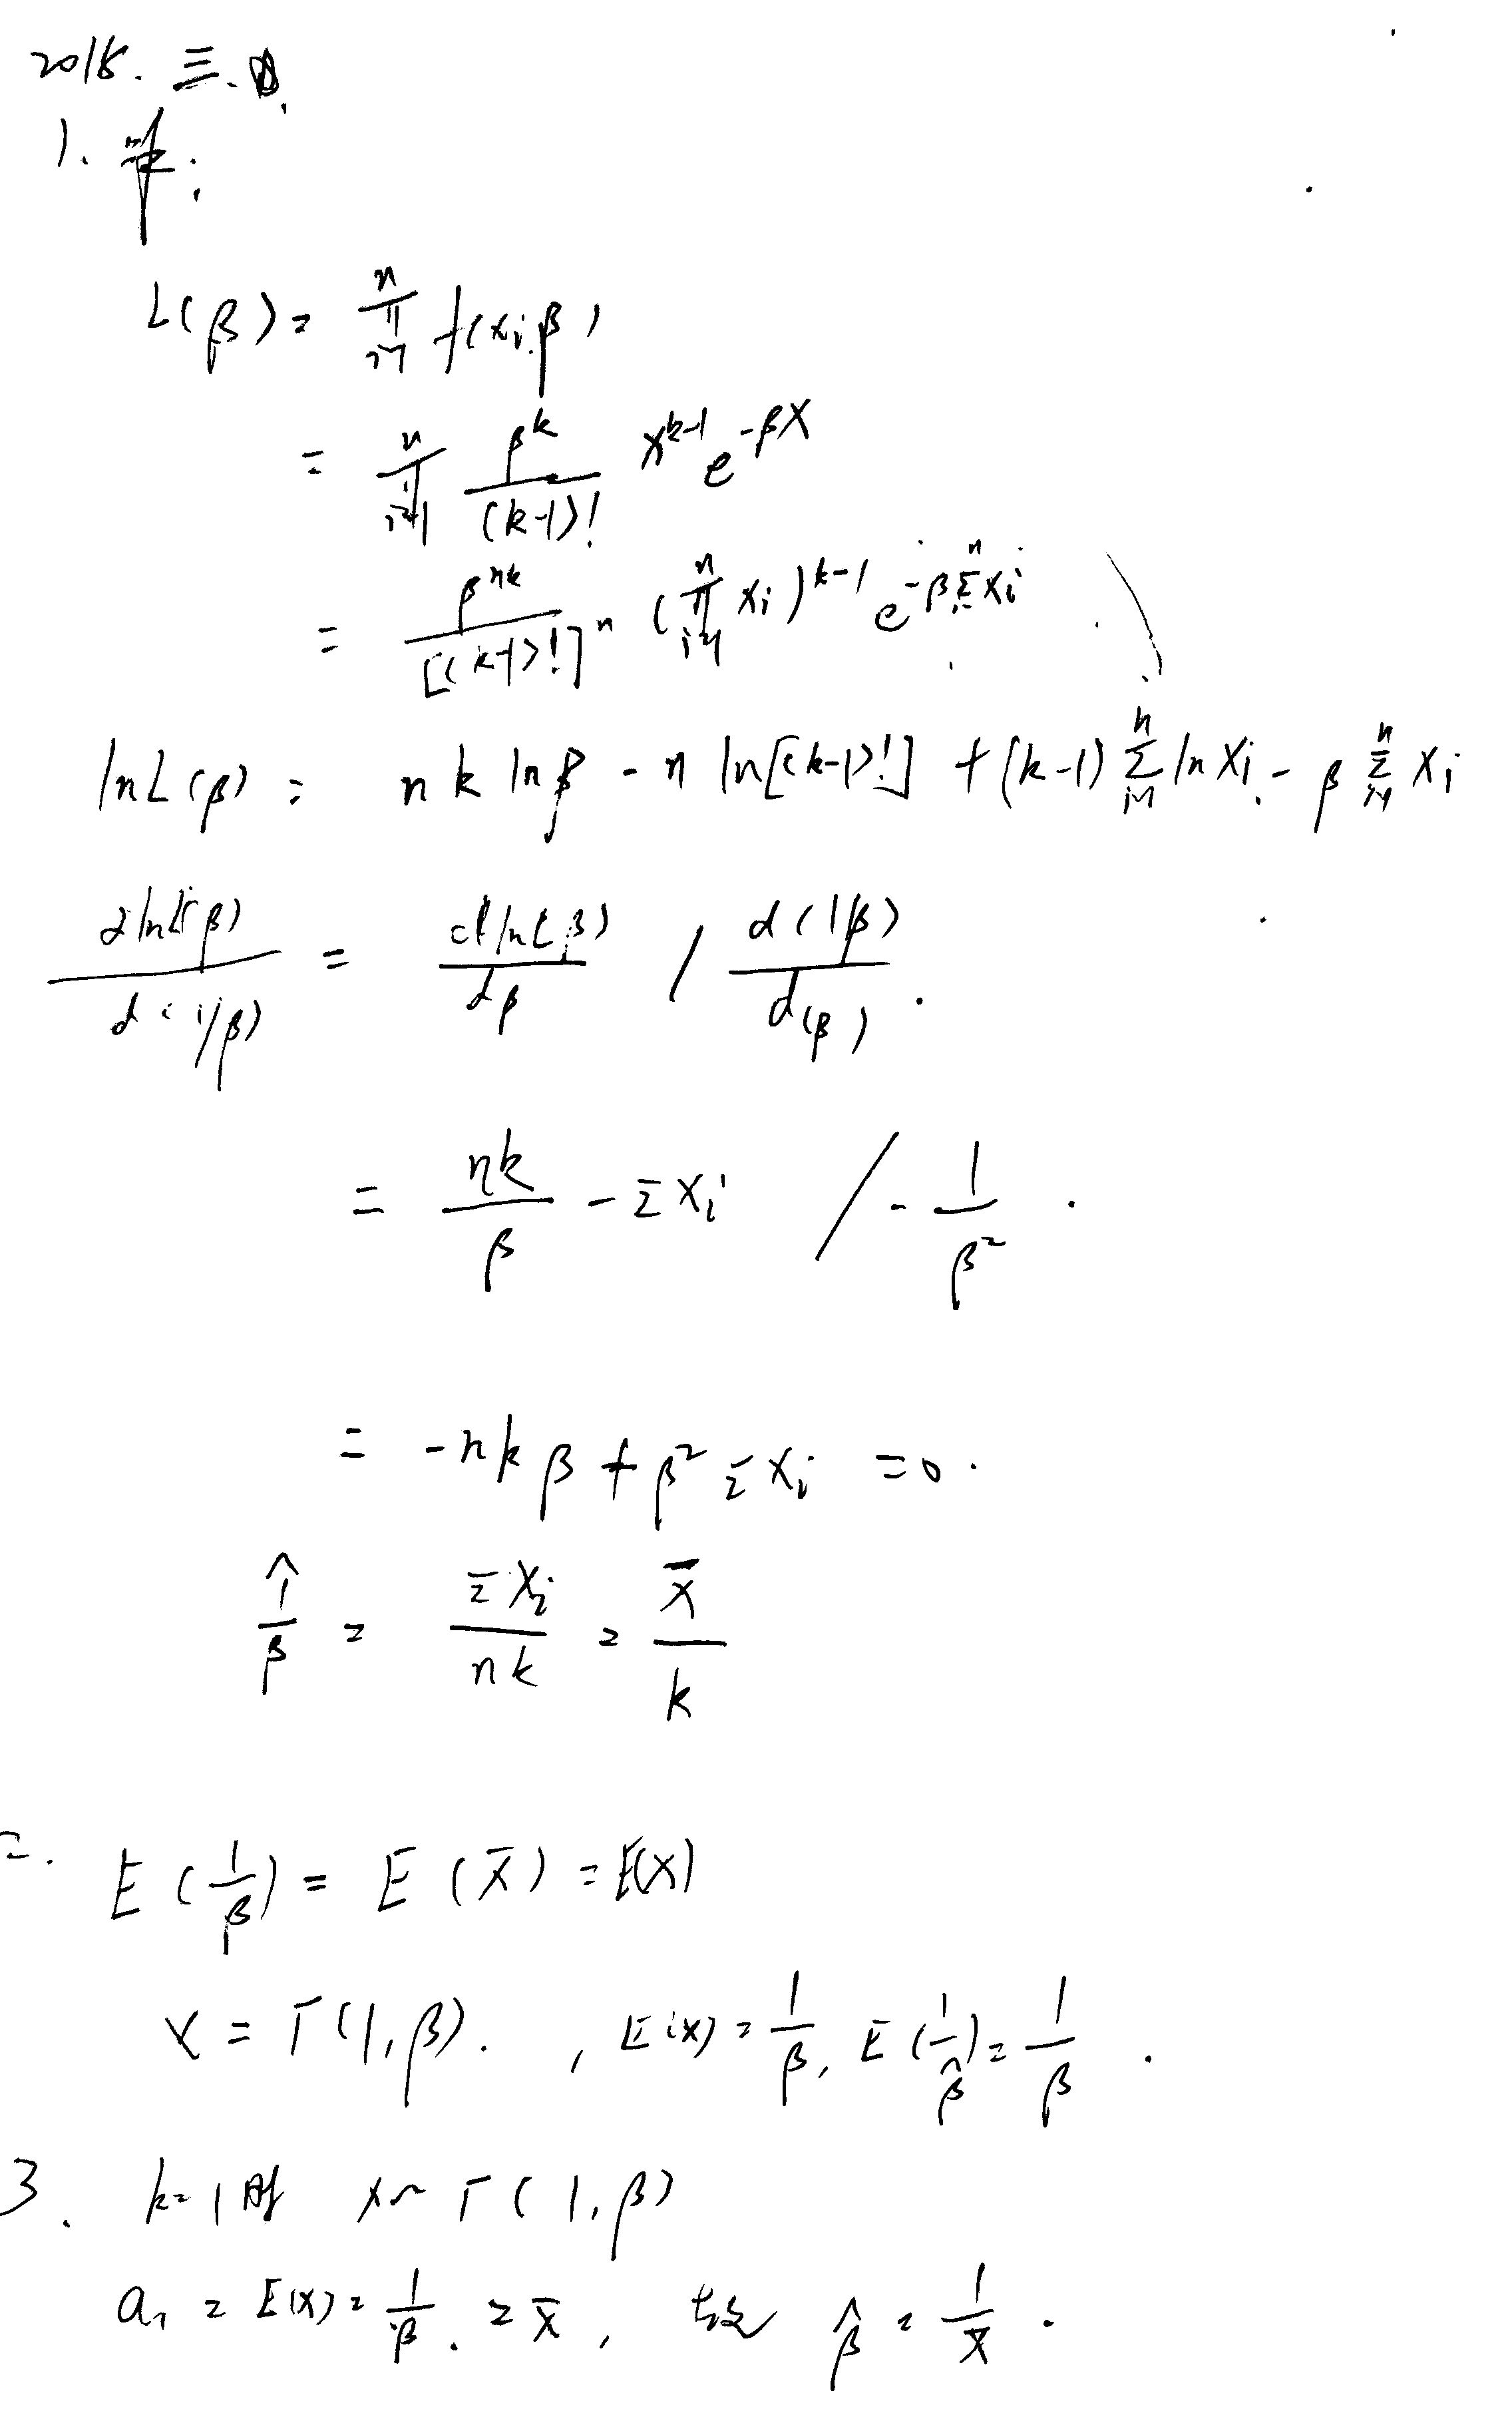 2018. 三.
1. 解:
L(β) = ∏_{i=1}^{n} f(xi.β)
= ∏_{i=1}^{n} β^k/(k-1)! x^{k-1} e^{-βx}
= β^{nk}/[(k-1)!]^n (∏_{i=1}^{n} xi)^{k-1} e^{-β Σ^{n} xi}
lnL(β) = nk lnβ - n ln[(k-1)!] + (k-1) Σ_{i=1}^{n} ln xi - β Σ_{i=1}^{n} xi
d lnL(β)/d(1/β) = d lnL(β)/dβ / d(1/β)/d(β) .
= nk/β - Σxi / -1/β² .
= -nkβ + β²Σxi = 0 .
\hat{1/β} = Σxi/nk = x̄/k
2. E(1/β) = E(x̄) = E(x)
x = Γ(1,β). , E(x) = 1/β, E(1/β̂) = 1/β .
3. k=1时 x~Γ(1,β)
a₁ = E(x) = 1/β . = x̄ , 故 β̂ = 1/x̄ .